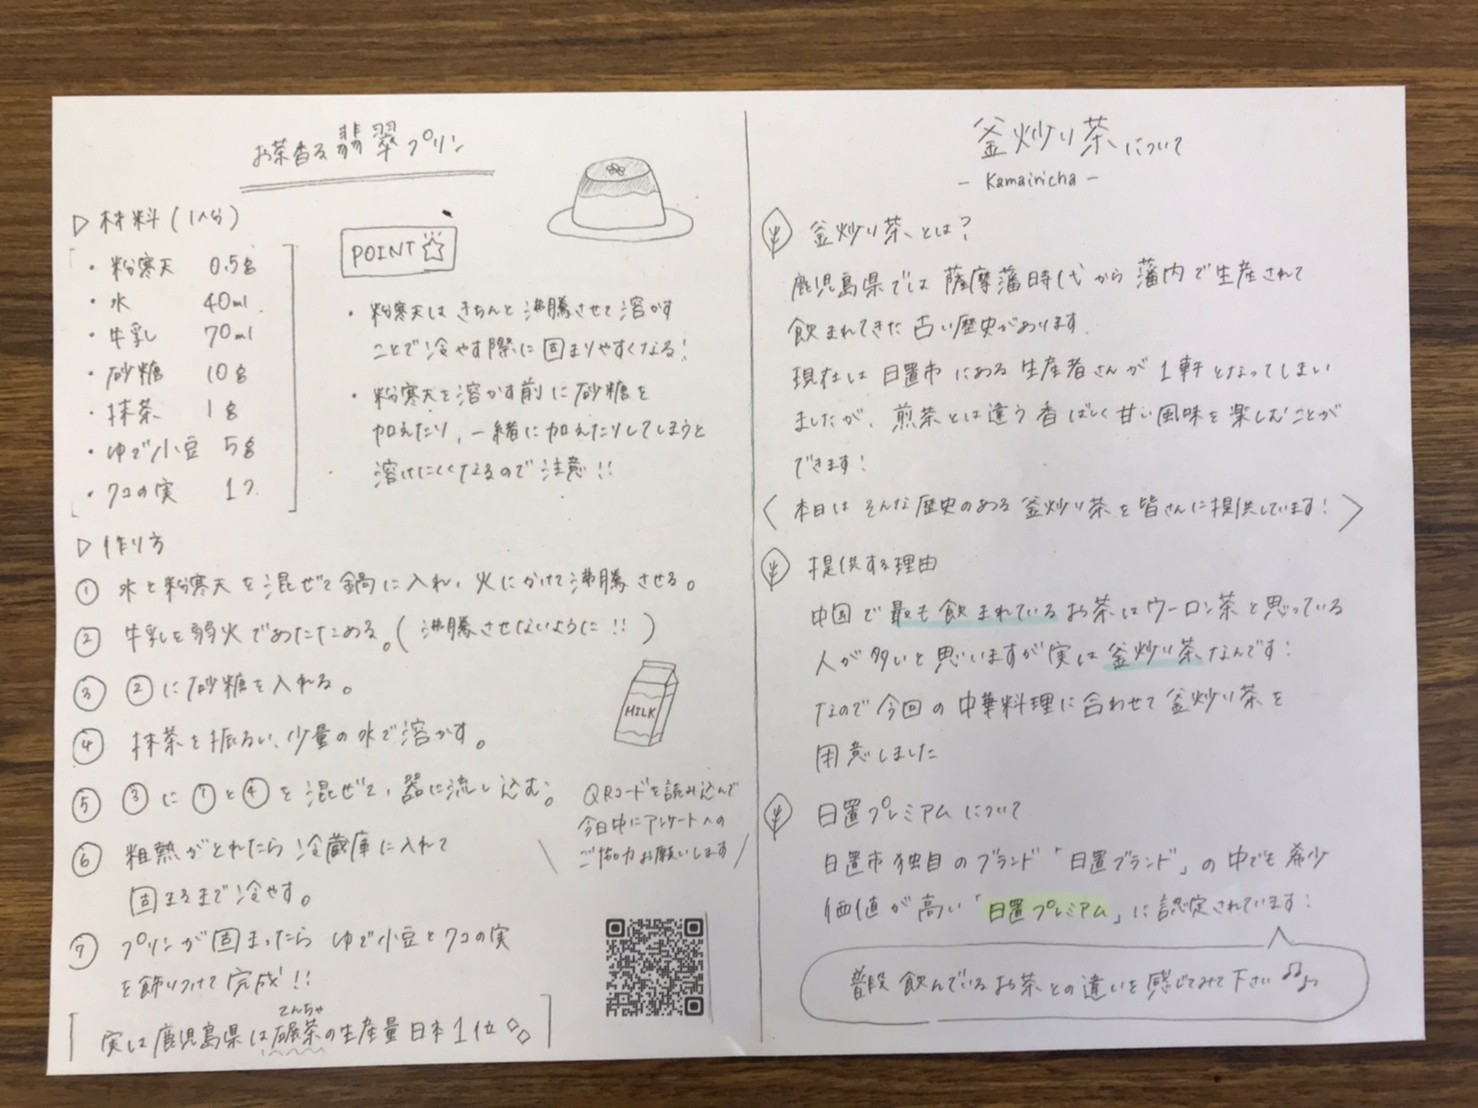 お茶香る翡翠プリン
▷ 材料(1人分)
・粉寒天 0.5g
・水 40ml
・牛乳 70ml
・砂糖 10g
・抹茶 1g
・ゆで小豆 5g
・クコの実 1つ
POINT
・粉寒天はきちんと沸騰させて溶かす
ことで冷やす際に固まりやすくなる!
・粉寒天を溶かす前に砂糖を
加えたり、一緒に加えたりしてしまうと
溶けにくくなるので注意!!
▷ 作り方
① 水と粉寒天を混ぜて鍋に入れ、火にかけて沸騰させる。
② 牛乳を弱火であたためる。(沸騰させないように!!)
③ ②に砂糖を入れる。
④ 抹茶を振るい、少量の水で溶かす。
⑤ ③に①と④を混ぜて、器に流し込む。
⑥ 粗熱がとれたら冷蔵庫に入れて
固まるまで冷やす。
⑦ プリンが固まったらゆで小豆とクコの実
を飾りつけて完成!!
MILK
QRコードを読み込んで
今日中にアンケートへの
ご協力お願いします
てんちゃ
実は鹿児島県は碾茶の生産量日本1位
釜炒り茶について
- Kamairicha -
釜炒り茶とは?
鹿児島県では薩摩藩時代から藩内で生産されて
飲まれてきた古い歴史があります.
現在は日置市にある生産者さんが1軒となってしまい
ましたが、煎茶とは違う香ばしく甘い風味を楽しむことが
できます!
〈 本日はそんな歴史のある釜炒り茶を皆さんに提供しています! 〉
提供する理由
中国で最も飲まれているお茶はウーロン茶と思っている
人が多いと思いますが実は釜炒り茶なんです!
なので今回の中華料理に合わせて釜炒り茶を
用意しました
日置プレミアムについて
日置市独自のブランド「日置ブランド」の中でも希少
価値が高い「日置プレミアム」に認定されています!
普段飲んでいるお茶との違いを感じてみて下さい♫♪